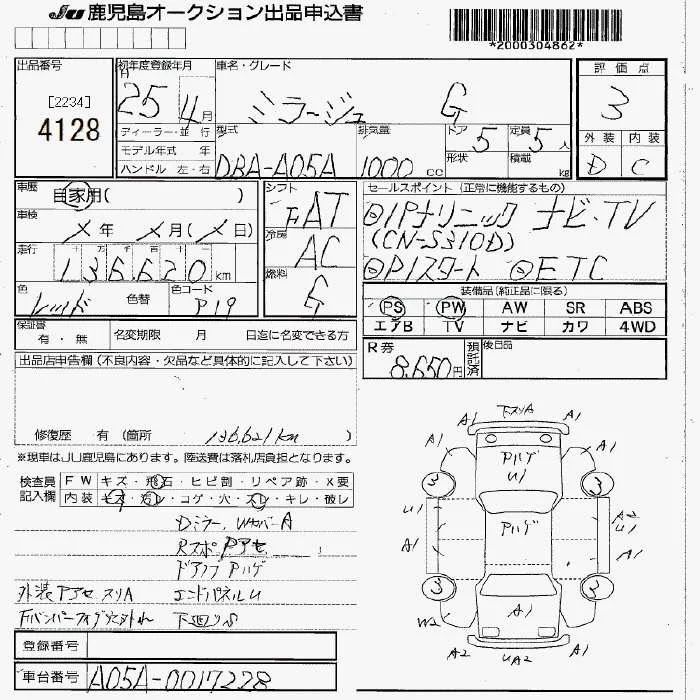 JU 鹿児島オークション出品申込書
*2000304862*
出品番号
[2234]
4128
初年度登録年月
H 25 年 4月
ディーラー・並行
モデル年式 年
ハンドル 左・右
車名・グレード
ミラージュ G
型式
DBA-A05A
排気量
1000 cc
ドア 5
形状
定員 5 人
積載 kg
評価点
3
外装 内装
D C
車歴
自家用( )
車検
メ年 メ月(メ日)
走行 十万 万 千 百 十
136620 km
色 色替 色コード
レッド P19
シフト
FAT
冷房
AC
燃料
G
セールスポイント (正常に機能するもの)
◎パナソニック ナビ・TV
(CN-S310D)
◎P/スタート ◎ETC
装備品(純正品に限る)
PS PW AW SR ABS
エアB TV ナビ カワ 4WD
保証書
有・無
名変期限 月 日迄に名変できる方
R券 8,650円
預託済
後日品
出品店申告欄(不良内容・欠品など具体的に記入して下さい)
修復歴 有 (箇所 136,621km )
※現車はJU鹿児島にあります。陸送費は落札店負担となります。
検査員記入欄
FW キズ・飛石・ヒビ割・リペア跡・X要
内装 ヨゴレ・スレ・コゲ・穴・スレ・キレ・破レ
Dミラー, Uカバー A
Rスポ Pアセ
ドアノブ Pハゲ
外装Pアセ スリA エンドパネルU
下回りS
下スリA
A1 A1
A1 A1
Pハゲ
U1
3 3
U1 Pハゲ A2
U1
A1 A1
3 3
A1
W2 A1
A2 UA2 A1
登録番号
車台番号 A05A-0017228